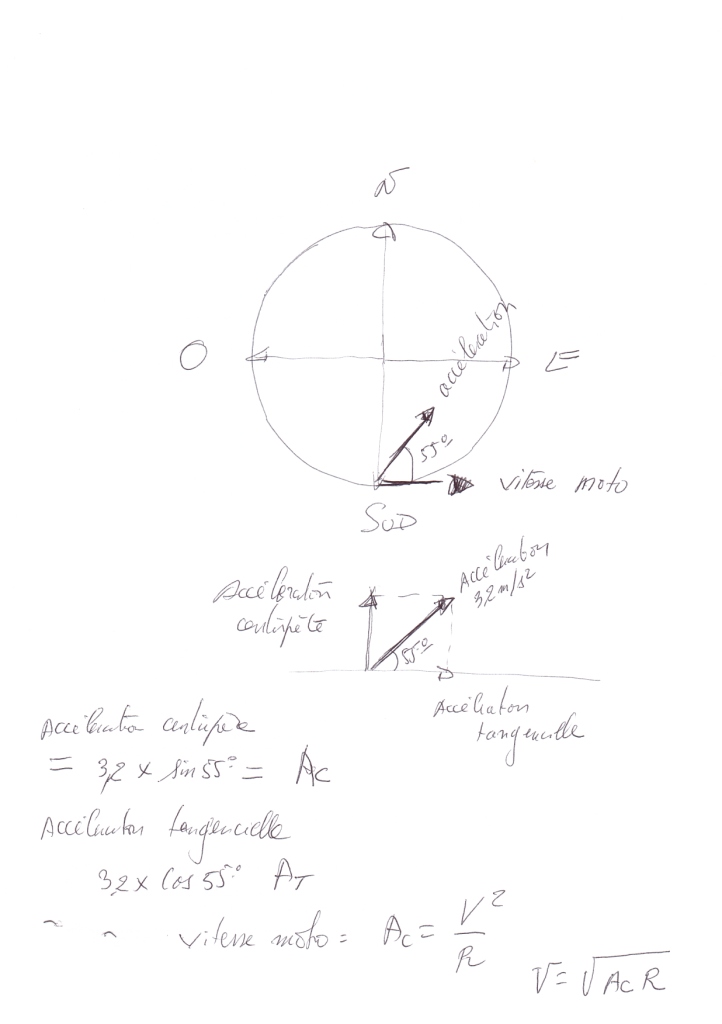 N
O
E
accélération
55°
vitesse moto
SUD
Accélération
centripète
Accélération
3,2 m/s²
55°
Accélération
tangencielle
Accélération centripète
= 3,2 x sin 55° = Ac
Accélération tangencielle
3,2 x Cos 55° AT
" " vitesse moto = Ac = V²/R
V = √Ac R